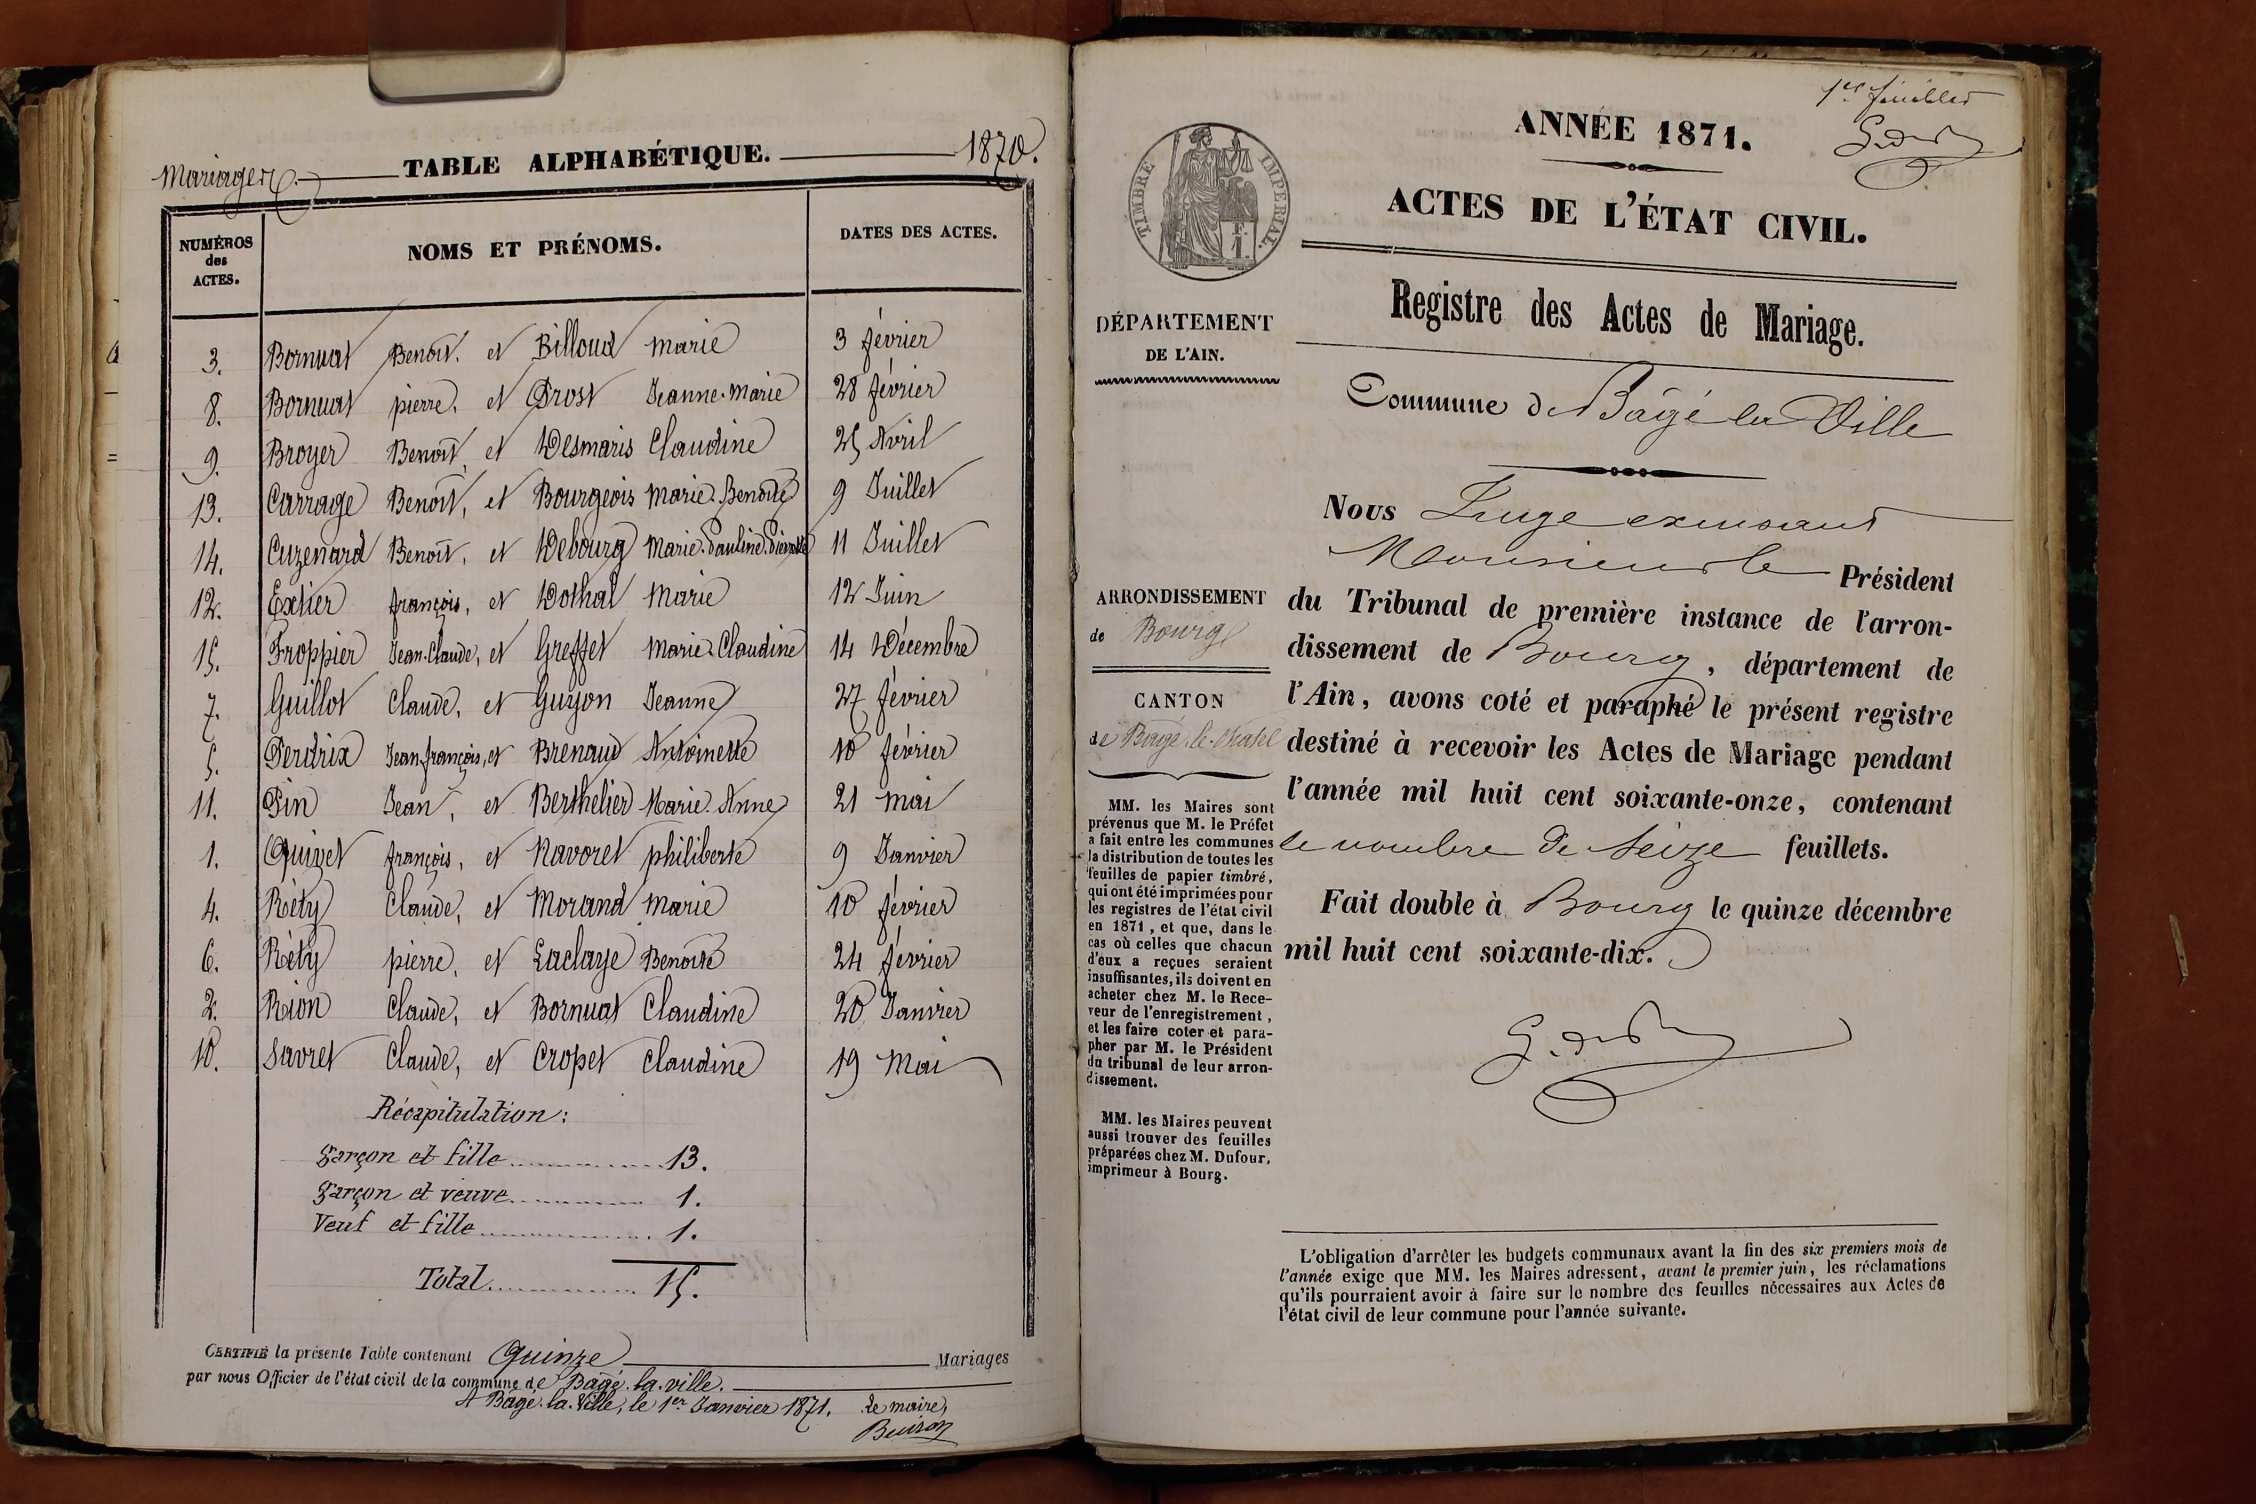 Mariages. TABLE ALPHABÉTIQUE. 1870.
NUMÉROS des ACTES. NOMS ET PRÉNOMS. DATES DES ACTES.
3. Bornuat Benoît, et Billoud Marie 3 février
8. Bornuat pierre, et Prost Jeanne-Marie 28 février
9. Broyer Benoît, et Desmaris Claudine 25 Avril
13. Carrage Benoît, et Bourgeois Marie-Benoîte 9 Juillet
14. Cuzenard Benoît, et Debourg Marie-Pauline-Pierrette 11 Juillet
12. Extier françois, et Dothal Marie 12 Juin
15. Froppier Jean-Claude, et Greffet Marie-Claudine 14 Décembre
7. Guillot Claude, et Guyon Jeanne 27 février
5. Perdrix Jean françois, et Brenaud Antoinette 10 février
11. Pin Jean, et Berthelier Marie-Anne 21 mai
1. Quivet françois, et Navoret philiberte 9 Janvier
4. Réty Claude, et Morand Marie 10 février
6. Réty pierre, et Laclaye Benoîte 24 février
2. Rion Claude, et Bornuat Claudine 20 Janvier
10. Savret Claude, et Cropet Claudine 19 Mai
Récapitulation:
garçon et fille 13.
garçon et veuve 1.
Veuf et fille 1.
Total 15.
CERTIFIÉ la présente Table contenant Quinze Mariages
par nous Officier de l'état civil de la commune de Bâgé-la-ville.
A Bâgé-la-Ville, le 1er Janvier 1871. Le maire,
1er feuillet
ANNÉE 1871.
ACTES DE L'ÉTAT CIVIL.
TIMBRE IMPÉRIAL.
F. 1.
Registre des Actes de Mariage.
DÉPARTEMENT
DE L'AIN.
Commune de Bâgé la Ville
Nous Juge exerçant
Monsieur le Président
du Tribunal de première instance de l'arron-
dissement de Bourg, département de
l'Ain, avons coté et paraphé le présent registre
destiné à recevoir les Actes de Mariage pendant
l'année mil huit cent soixante-onze, contenant
le nombre de seize feuillets.
Fait double à Bourg le quinze décembre
mil huit cent soixante-dix.
ARRONDISSEMENT
de Bourg
CANTON
de Bâgé-le-Chatel
MM. les Maires sont
prévenus que M. le Préfet
a fait entre les communes
la distribution de toutes les
feuilles de papier timbré,
qui ont été imprimées pour
les registres de l'état civil
en 1871, et que, dans le
cas où celles que chacun
d'eux a reçues seraient
insuffisantes, ils doivent en
acheter chez M. le Rece-
veur de l'enregistrement,
et les faire coter et para-
pher par M. le Président
du tribunal de leur arron-
dissement.
MM. les Maires peuvent
aussi trouver des feuilles
préparées chez M. Dufour,
imprimeur à Bourg.
L'obligation d'arrêter les budgets communaux avant la fin des six premiers mois de
l'année exige que MM. les Maires adressent, avant le premier juin, les réclamations
qu'ils pourraient avoir à faire sur le nombre des feuilles nécessaires aux Actes de
l'état civil de leur commune pour l'année suivante.